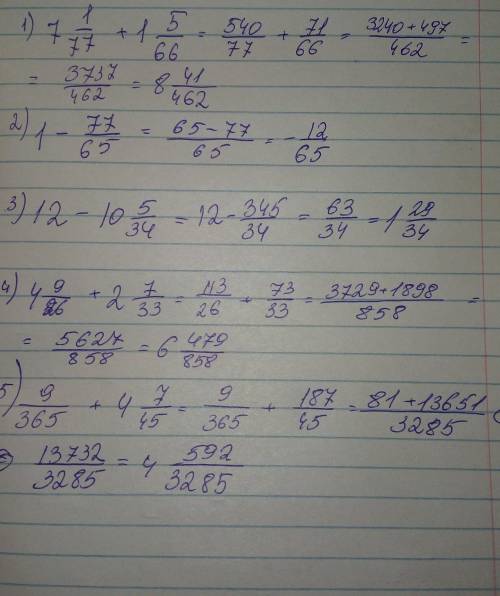 1) 7 1/77 + 1 5/66 = 540/77 + 71/66 = 3240+497/462 =
= 3737/462 = 8 41/462
2) 1 - 77/65 = 65-77/65 = -12/65
3) 12 - 10 5/34 = 12 - 345/34 = 63/34 = 1 29/34
4) 4 9/26 + 2 7/33 = 113/26 + 73/33 = 3729+1898/858 =
= 5627/858 = 6 479/858
5) 9/365 + 4 7/45 = 9/365 + 187/45 = 81+13651/3285
= 13732/3285 = 4 592/3285